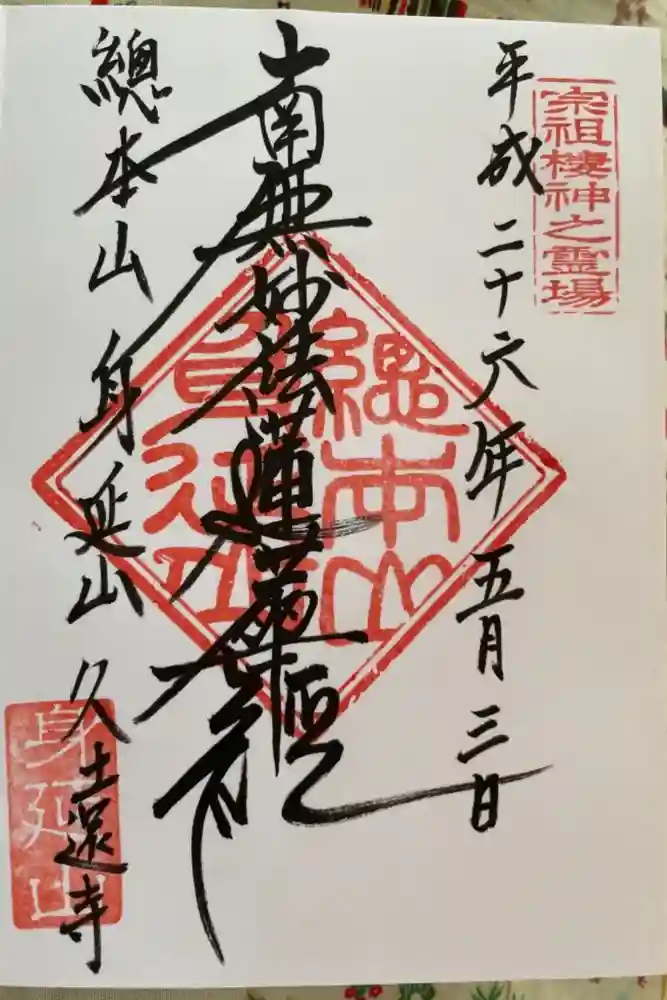 宗祖棲神之霊場
平成二十六年五月三日
南無妙法蓮華経
總本山
身延山
總本山身延山久遠寺
身延山